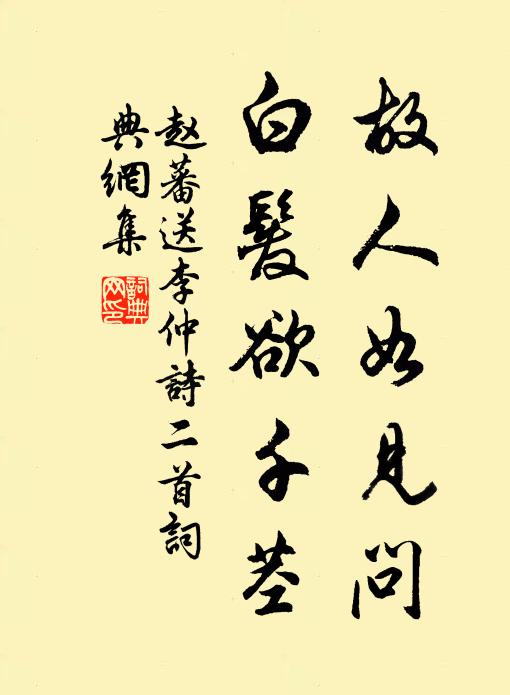 故人如見問
白髮欲千莖
赵蕃送李仲詩二首詞
典網集
詞典网印